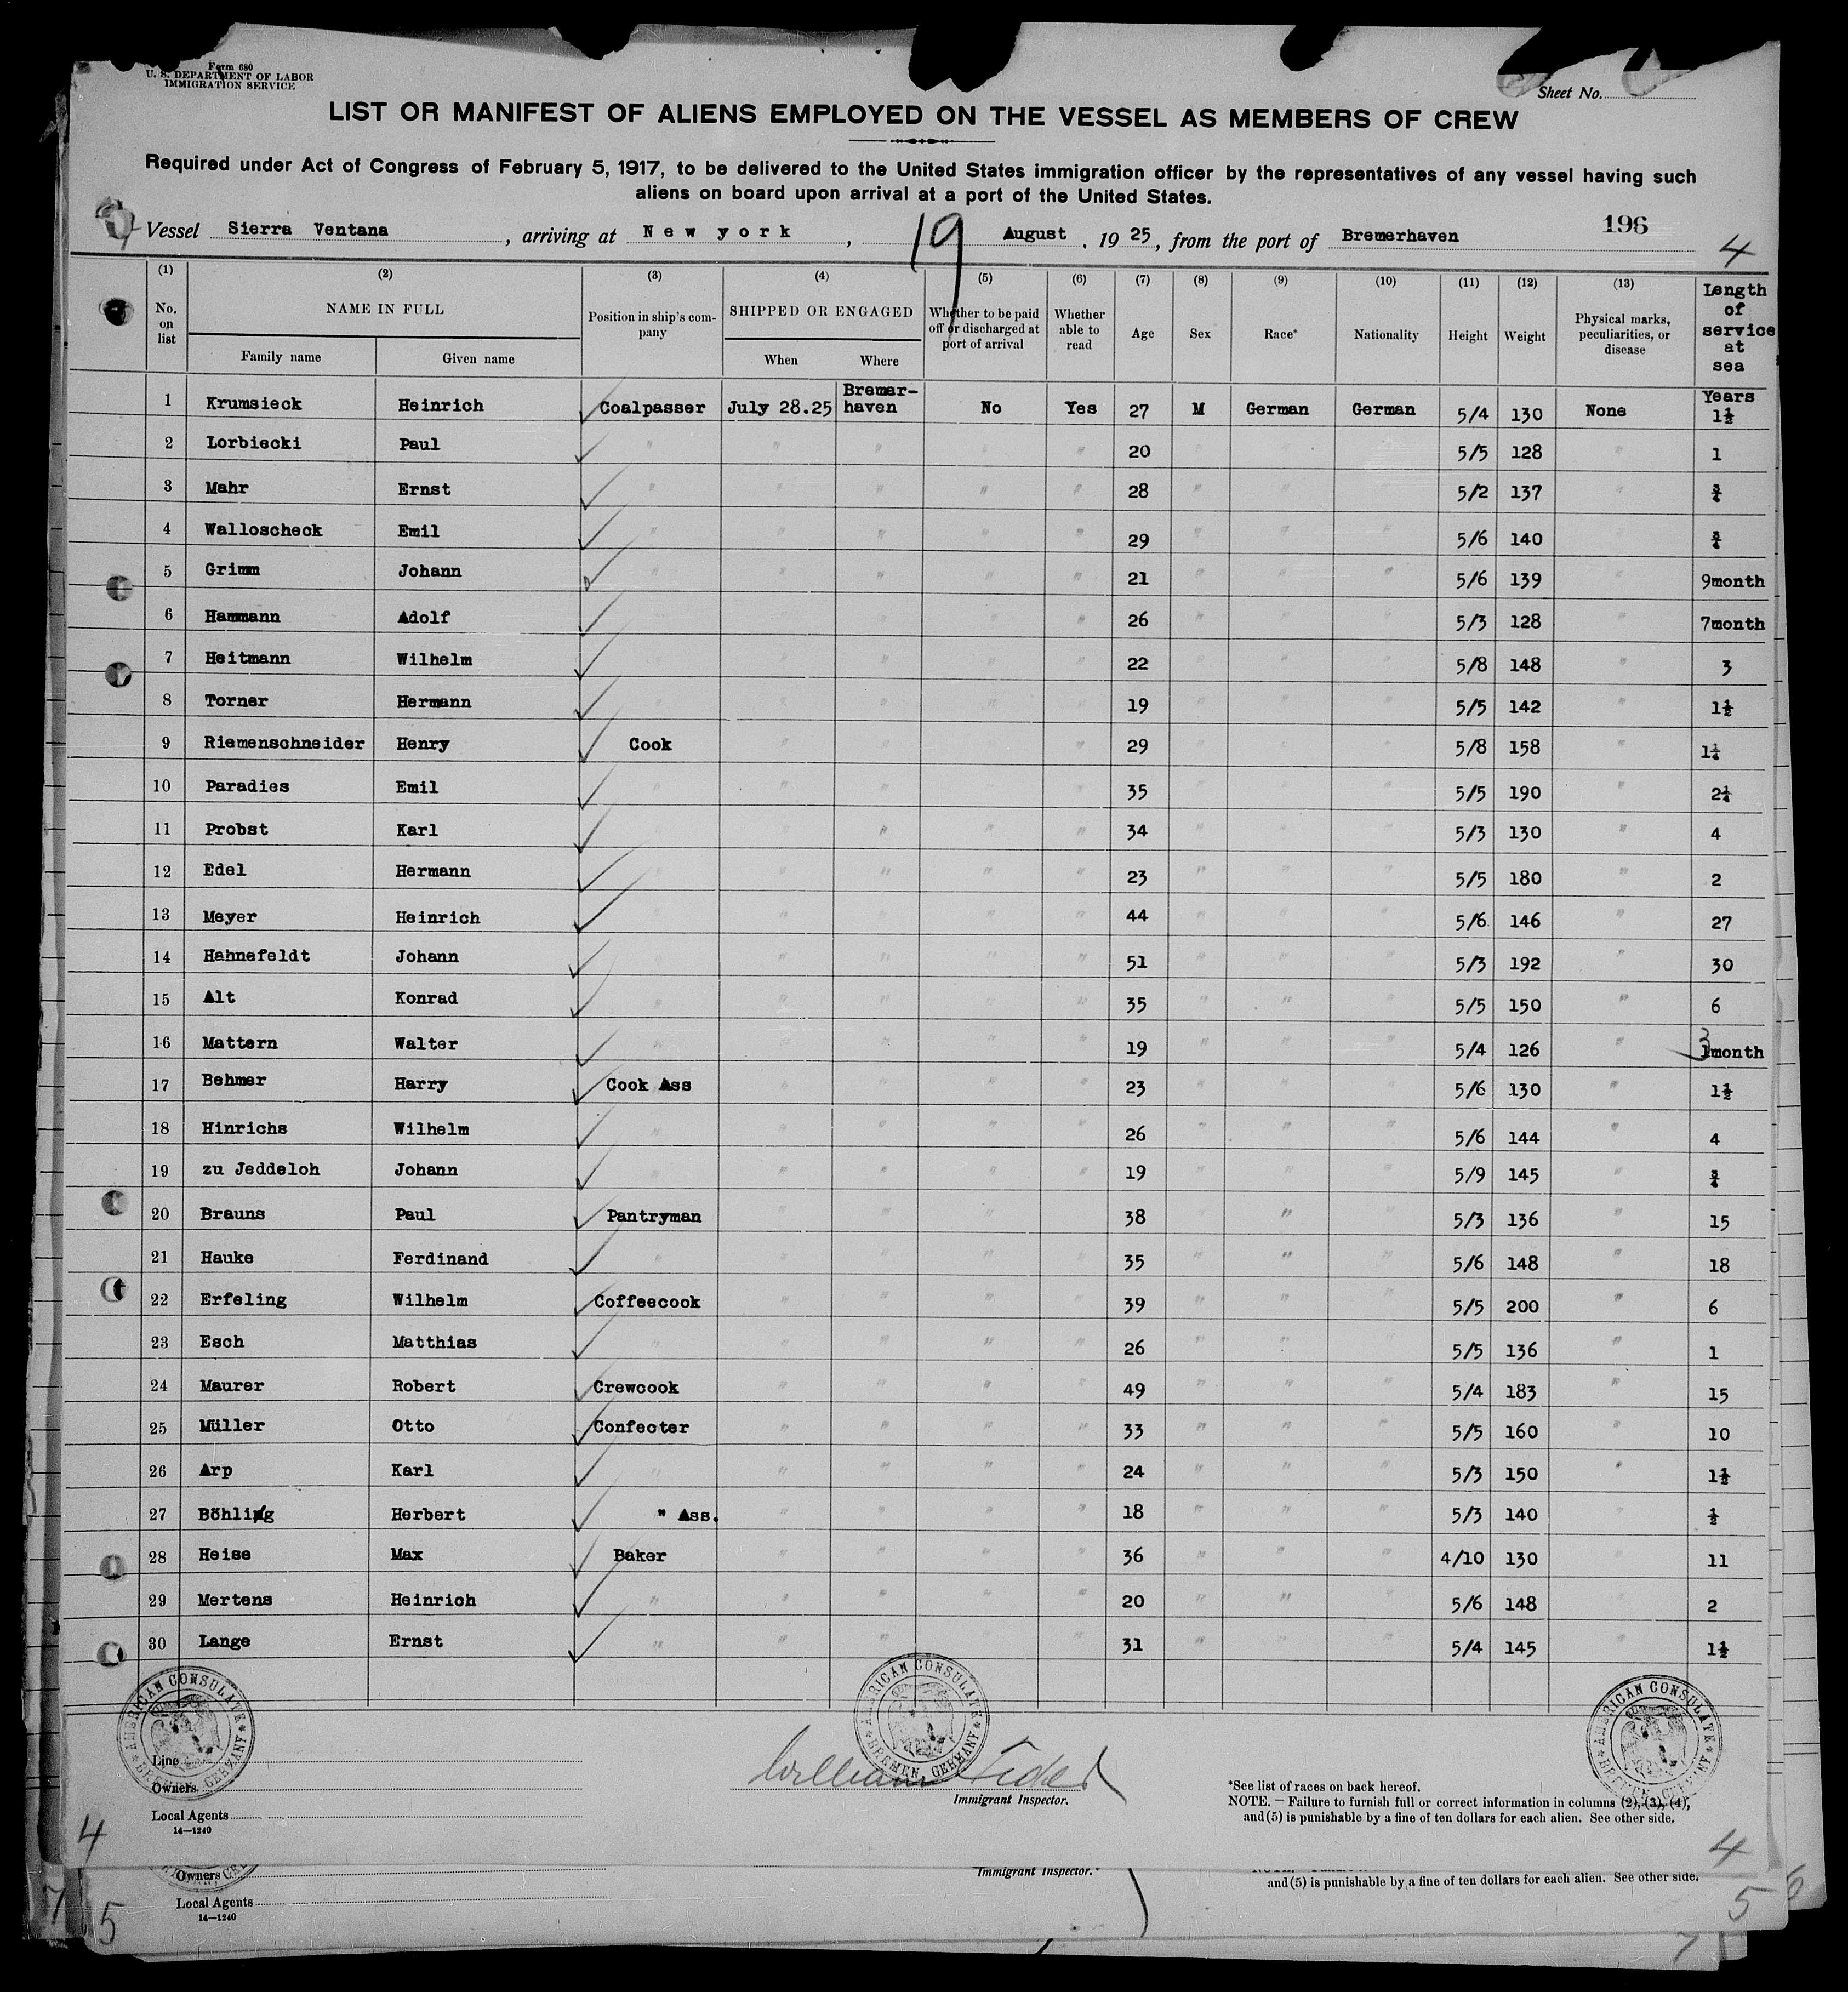 Form 680
U. S. DEPARTMENT OF LABOR
IMMIGRATION SERVICE
Sheet No.
LIST OR MANIFEST OF ALIENS EMPLOYED ON THE VESSEL AS MEMBERS OF CREW
Required under Act of Congress of February 5, 1917, to be delivered to the United States immigration officer by the representatives of any vessel having such
aliens on board upon arrival at a port of the United States.
Vessel Sierra Ventana, arriving at New york, 19 August, 1925, from the port of Bremerhaven 196 4
(1) (2) (3) (4) (5) (6) (7) (8) (9) (10) (11) (12) (13) Length of service at sea
No. on list NAME IN FULL Position in ship's company SHIPPED OR ENGAGED Whether to be paid off or discharged at port of arrival Whether able to read Age Sex Race* Nationality Height Weight Physical marks, peculiarities, or disease
Family name Given name When Where
1 Krumsieck Heinrich Coalpasser July 28.25 Bremerhaven No Yes 27 M German German 5/4 130 None Years 1½
2 Lorbiecki Paul " " " " " 20 " " " 5/5 128 " 1
3 Mahr Ernst " " " " " 28 " " " 5/2 137 " ¾
4 Walloscheck Emil " " " " " 29 " " " 5/6 140 " ¾
5 Grimm Johann " " " " " 21 " " " 5/6 139 " 9month
6 Hammann Adolf " " " " " 26 " " " 5/3 128 " 7month
7 Heitmann Wilhelm " " " " " 22 " " " 5/8 148 " 3
8 Torner Hermann " " " " " 19 " " " 5/5 142 " 1½
9 Riemenschneider Henry Cook " " " " 29 " " " 5/8 158 " 1¼
10 Paradies Emil " " " " " 35 " " " 5/5 190 " 2¼
11 Probst Karl " " " " " 34 " " " 5/3 130 " 4
12 Edel Hermann " " " " " 23 " " " 5/5 180 " 2
13 Meyer Heinrich " " " " " 44 " " " 5/6 146 " 27
14 Hahnefeldt Johann " " " " " 51 " " " 5/3 192 " 30
15 Alt Konrad " " " " " 35 " " " 5/5 150 " 6
16 Mattern Walter " " " " " 19 " " " 5/4 126 " 3month
17 Behmer Harry Cook Ass " " " " 23 " " " 5/6 130 " 1½
18 Hinrichs Wilhelm " " " " " 26 " " " 5/6 144 " 4
19 zu Jeddeloh Johann " " " " " 19 " " " 5/9 145 " ¾
20 Brauns Paul Pantryman " " " " 38 " " " 5/3 136 " 15
21 Hauke Ferdinand " " " " " 35 " " " 5/6 148 " 18
22 Erfeling Wilhelm Coffeecook " " " " 39 " " " 5/5 200 " 6
23 Esch Matthias " " " " " 26 " " " 5/5 136 " 1
24 Maurer Robert Crewcook " " " " 49 " " " 5/4 183 " 15
25 Müller Otto Confecter " " " " 33 " " " 5/5 160 " 10
26 Arp Karl " " " " " 24 " " " 5/3 150 " 1½
27 Böhling Herbert " Ass. " " " " 18 " " " 5/3 140 " ½
28 Heise Max Baker " " " " 36 " " " 4/10 130 " 11
29 Mertens Heinrich " " " " " 20 " " " 5/6 148 " 2
30 Lange Ernst " " " " " 31 " " " 5/4 145 " 1½
AMERICAN CONSULATE BREMEN, GERMANY
AMERICAN CONSULATE BREMEN, GERMANY
AMERICAN CONSULATE BREMEN, GERMANY
Line
Owners
Local Agents
14—1240
William
Immigrant Inspector.
*See list of races on back hereof.
NOTE.—Failure to furnish full or correct information in columns (2), (3), (4),
and (5) is punishable by a fine of ten dollars for each alien. See other side.
4 4
Owners
Immigrant Inspector.
and (5) is punishable by a fine of ten dollars for each alien. See other side.
Local Agents
14—1240
7 5 5 6
7